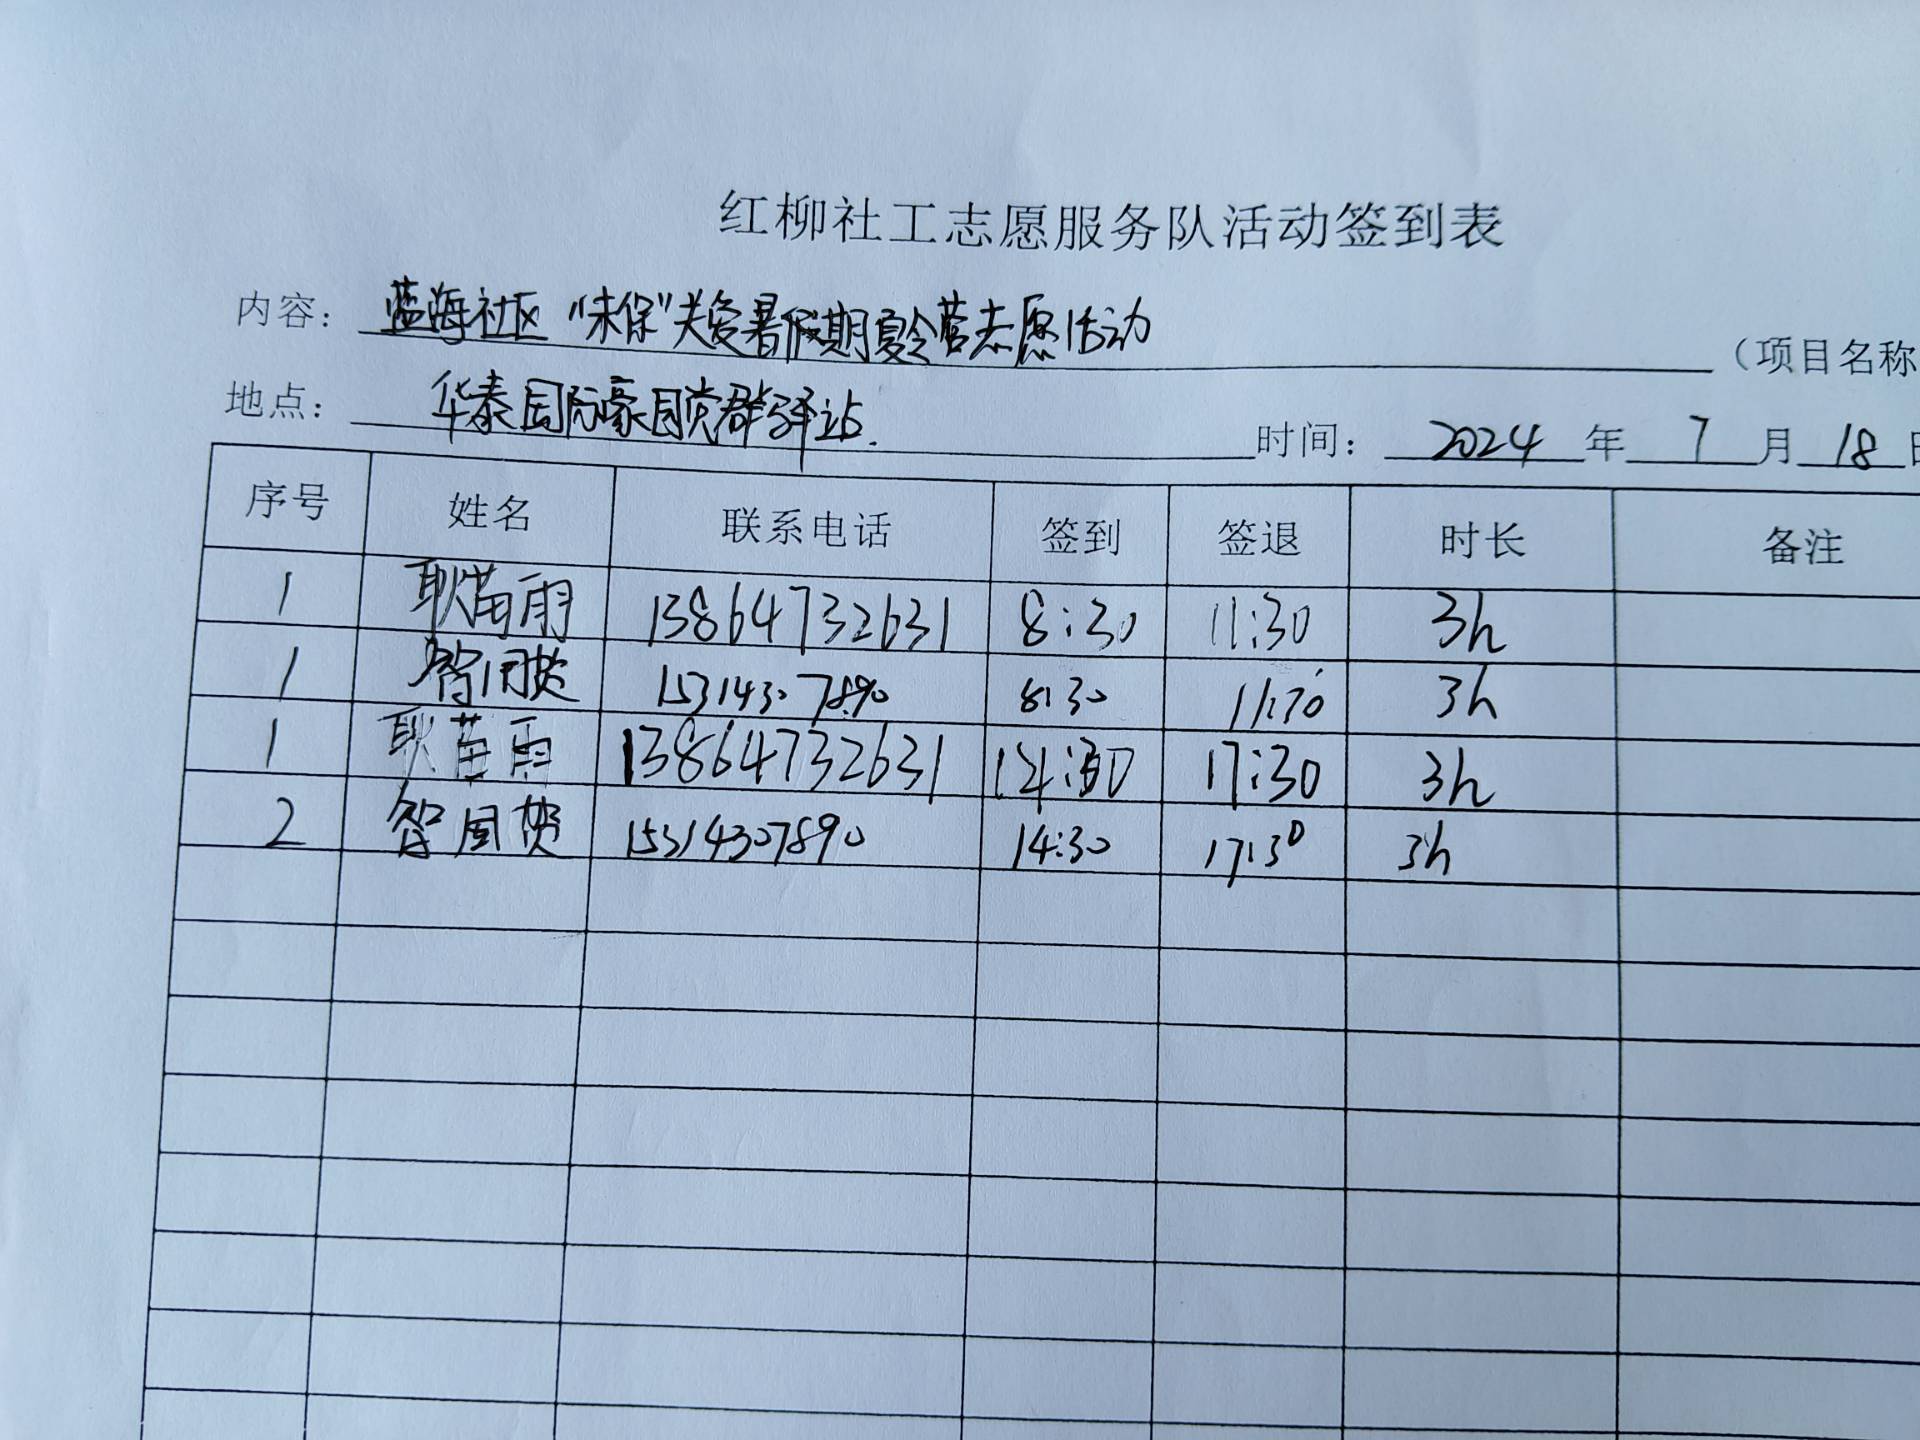 红柳社工志愿服务队活动签到表
内容: 蓝海社区“未保”关爱暑假期夏令营志愿活动 (项目名称
地点: 华泰国际豪园党群驿站. 时间: 2024 年 7 月 18 日
序号 姓名 联系电话 签到 签退 时长 备注
1 耿苗雨 13864732631 8:30 11:30 3h
1 15314307890 8:30 11:30 3h
1 耿苗雨 13864732631 14:30 17:30 3h
2 15314307890 14:30 17:30 3h